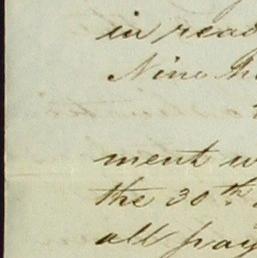 in read
Nine h
ment w
the 30th
all pay